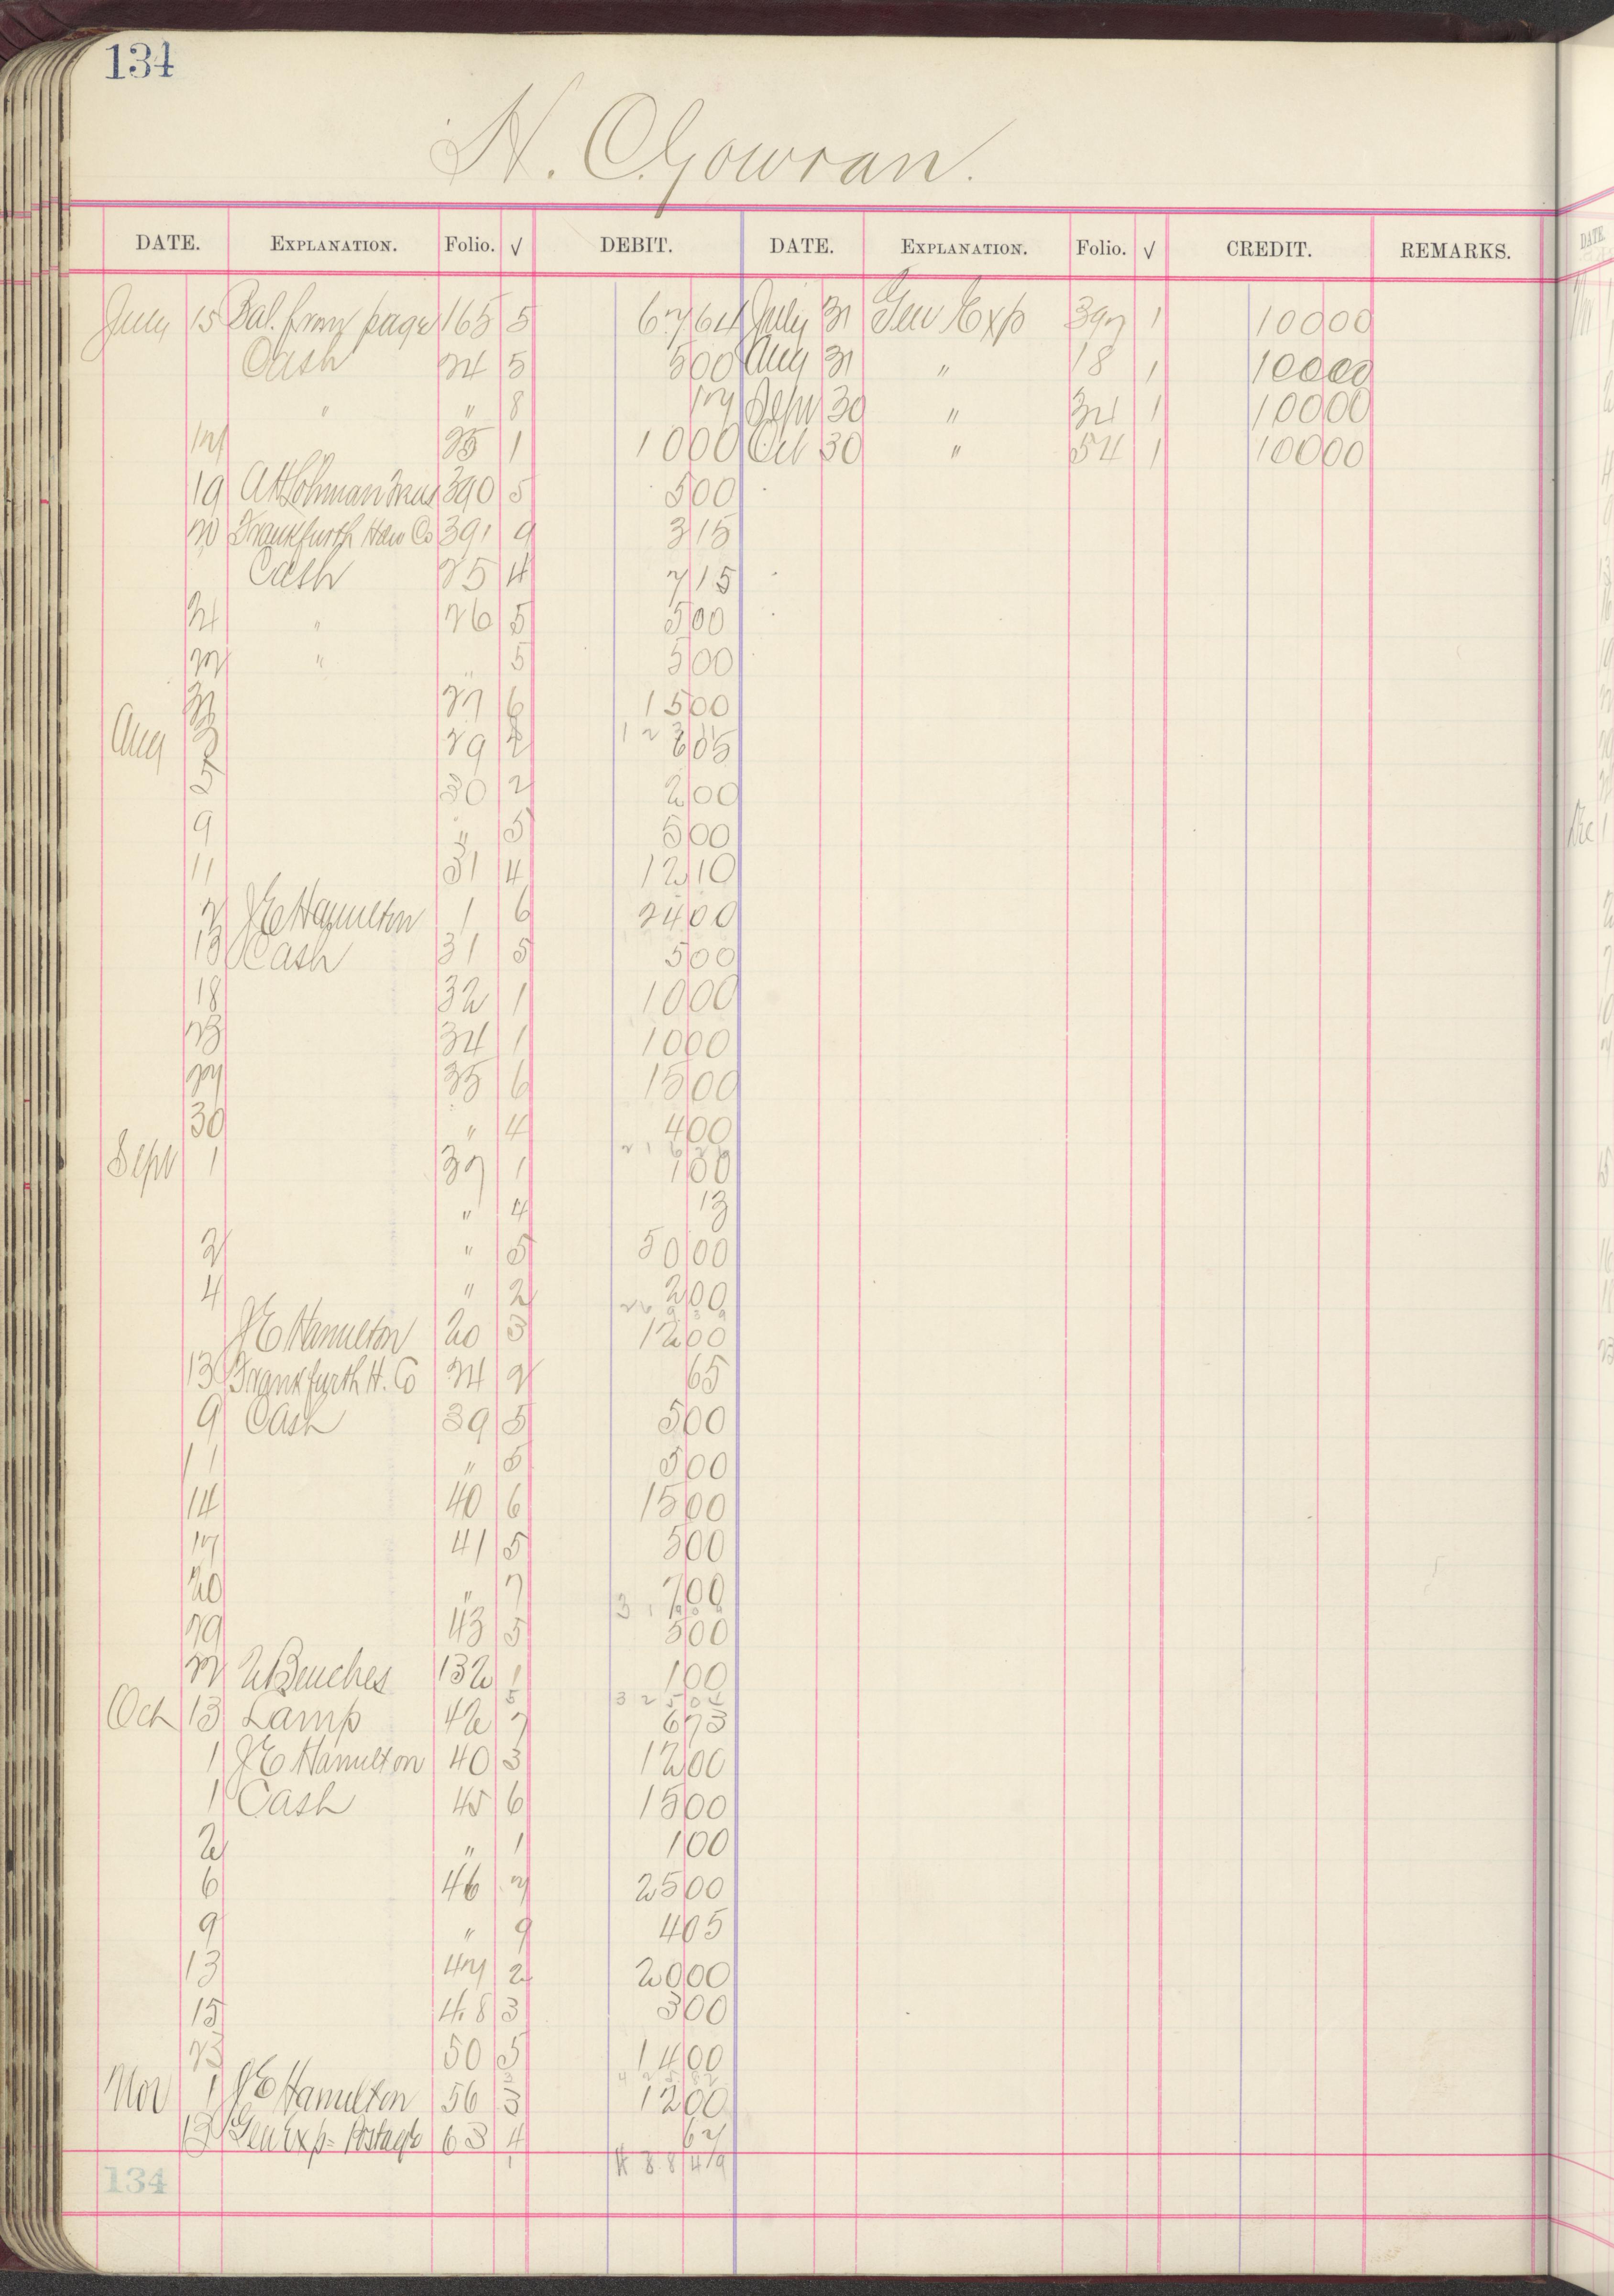 134
H. C. Gowran.
DATE. EXPLANATION. Folio. √ DEBIT. DATE. EXPLANATION. Folio. √ CREDIT. REMARKS.
July 15 Bal. from page 165 5 6764 July 31 Gen Exp 397 1 10000
Cash 24 5 500 Aug 31 " 18 1 10000
" " 8 17 Sept 30 " 34 1 10000
17 25 1 1000 Oct 30 " 54 1 10000
19 390 5 500
20 Frankfurth Haw Co 391 9 315
Cash 25 4 715
24 " 26 5 500
27 " " 5 500
31 27 6 1500
Aug 3 29 2 605
5 30 2 200
9 " 5 500
11 31 4 1210
2 J E Hamilton 1 6 2400
13 Cash 31 5 500
18 32 1 1000
23 34 1 1000
27 35 6 1500
30 " 4 400
Sept 1 37 1 100
" 4 13
2 " 5 5000
4 " 2 200
J E Hamilton 20 3 1200
13 Frankfurth H. Co 24 2 65
9 Cash 39 5 500
11 " 5 500
14 40 6 1500
17 41 5 500
20 " 7 700
29 43 5 500
27 2 Benches 132 1 100
3250
Oct 13 Lamp 42 7 673
1 J E Hamilton 40 3 1200
1 Cash 45 6 1500
2 " 1 100
6 46 7 2500
9 " 9 405
13 47 2 2000
15 48 3 300
23 50 5 1400
Nov 1 J E Hamilton 56 3 1200
13 Gen Exp - Postage 63 4 67
134